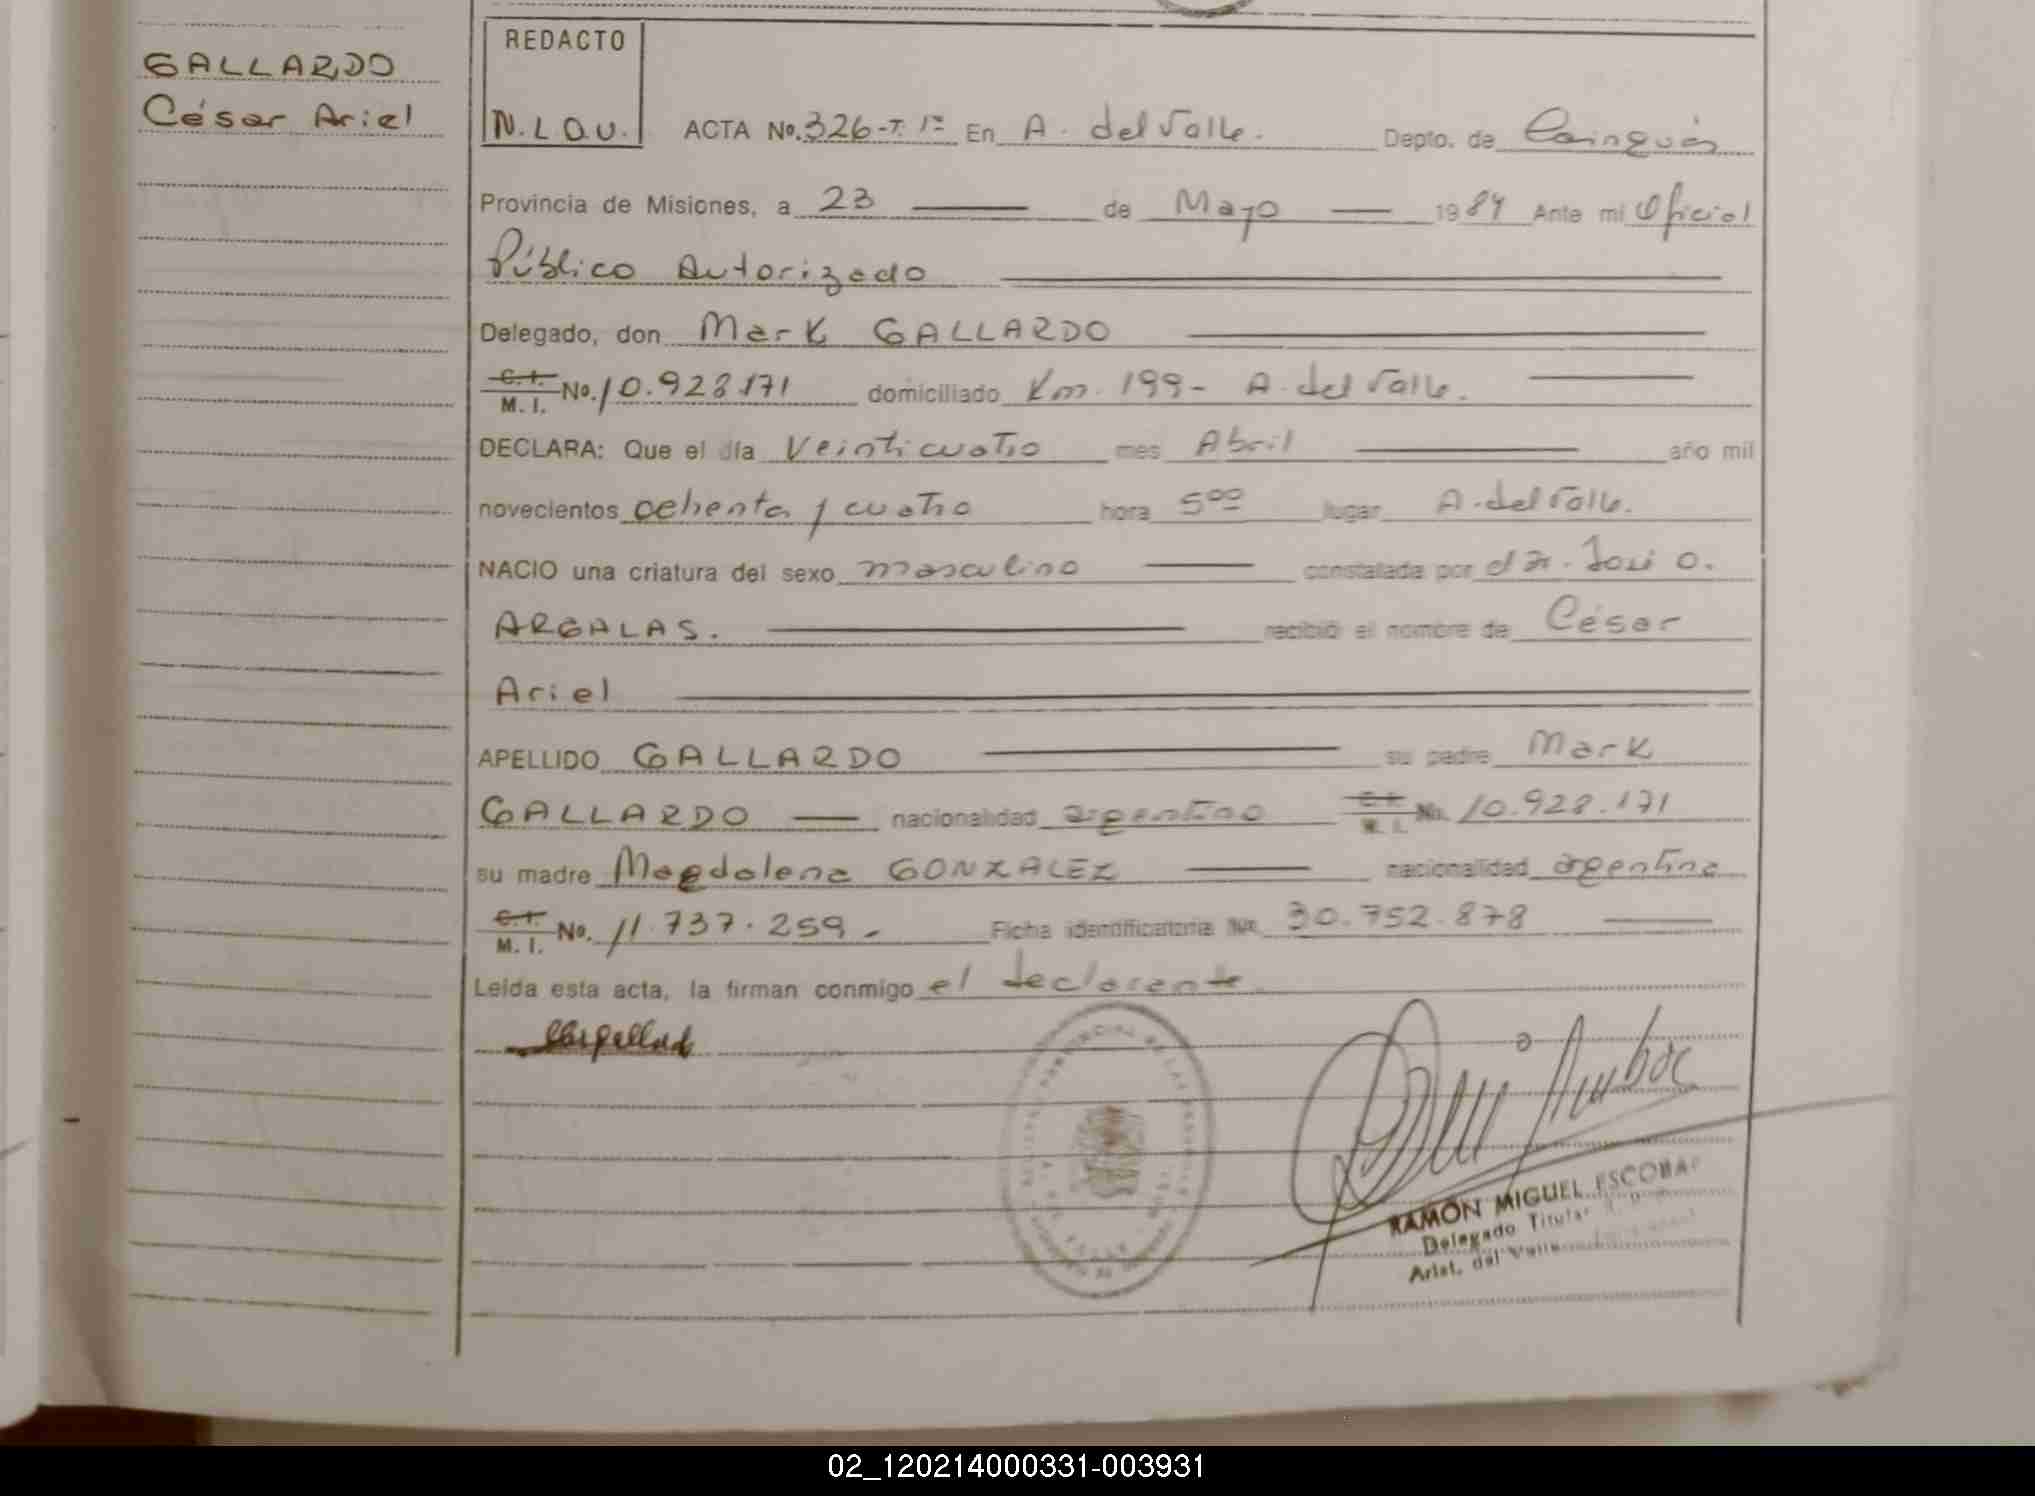 GALLARDO
César Ariel
REDACTO
N.L.O.U.
ACTA No. 326-T. 1º En A. del Valle. Depto. de Cainguás
Provincia de Misiones, a 23 de Mayo 1984 Ante mi Oficial
Público Autorizado
Delegado, don Mark GALLARDO
C.I. M.I. No. 10.928171 domiciliado Km. 199- A. del Valle.
DECLARA: Que el día Veinticuatro mes Abril año mil
novecientos ochenta y cuatro hora 5 00 lugar A. del Valle.
NACIO una criatura del sexo masculino constatada por el Dr. José O.
ARGALAS. recibió el nombre de César
Ariel
APELLIDO GALLARDO su padre Mark
GALLARDO nacionalidad argentino C.I. M.I. No. 10.928.171
su madre Magdalena GONZALEZ nacionalidad argentina
C.I. M.I. No. 11.737.259. Ficha identificatoria No. 30.752.878
Leída esta acta, la firman conmigo el declarante
RAMÓN MIGUEL ESCOBAR
Delegado Titular
Arist. del Valle
02_120214000331-003931